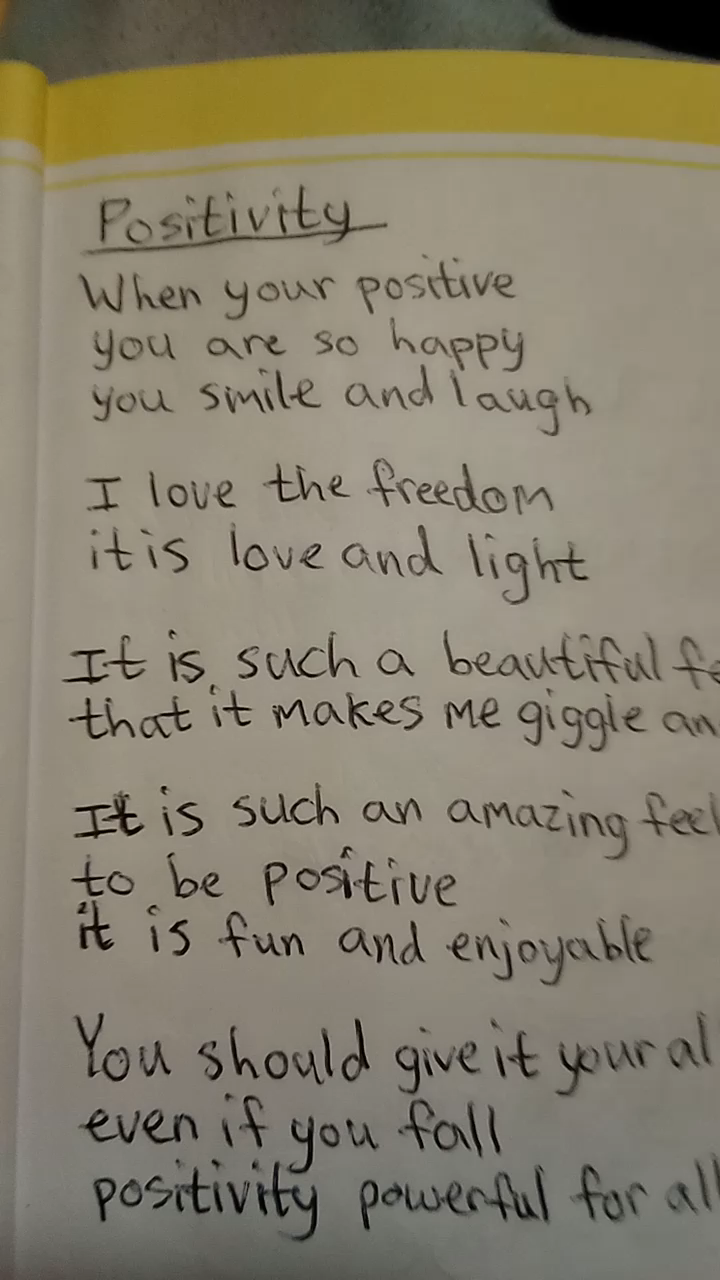 Positivity
When your positive
you are so happy
you smile and laugh
I love the freedom
it is love and light
It is such a beautiful
that it makes me giggle
It is such an amazing
to be positive
it is fun and enjoyable
You should give it your
even if you fall
positivity powerful for all